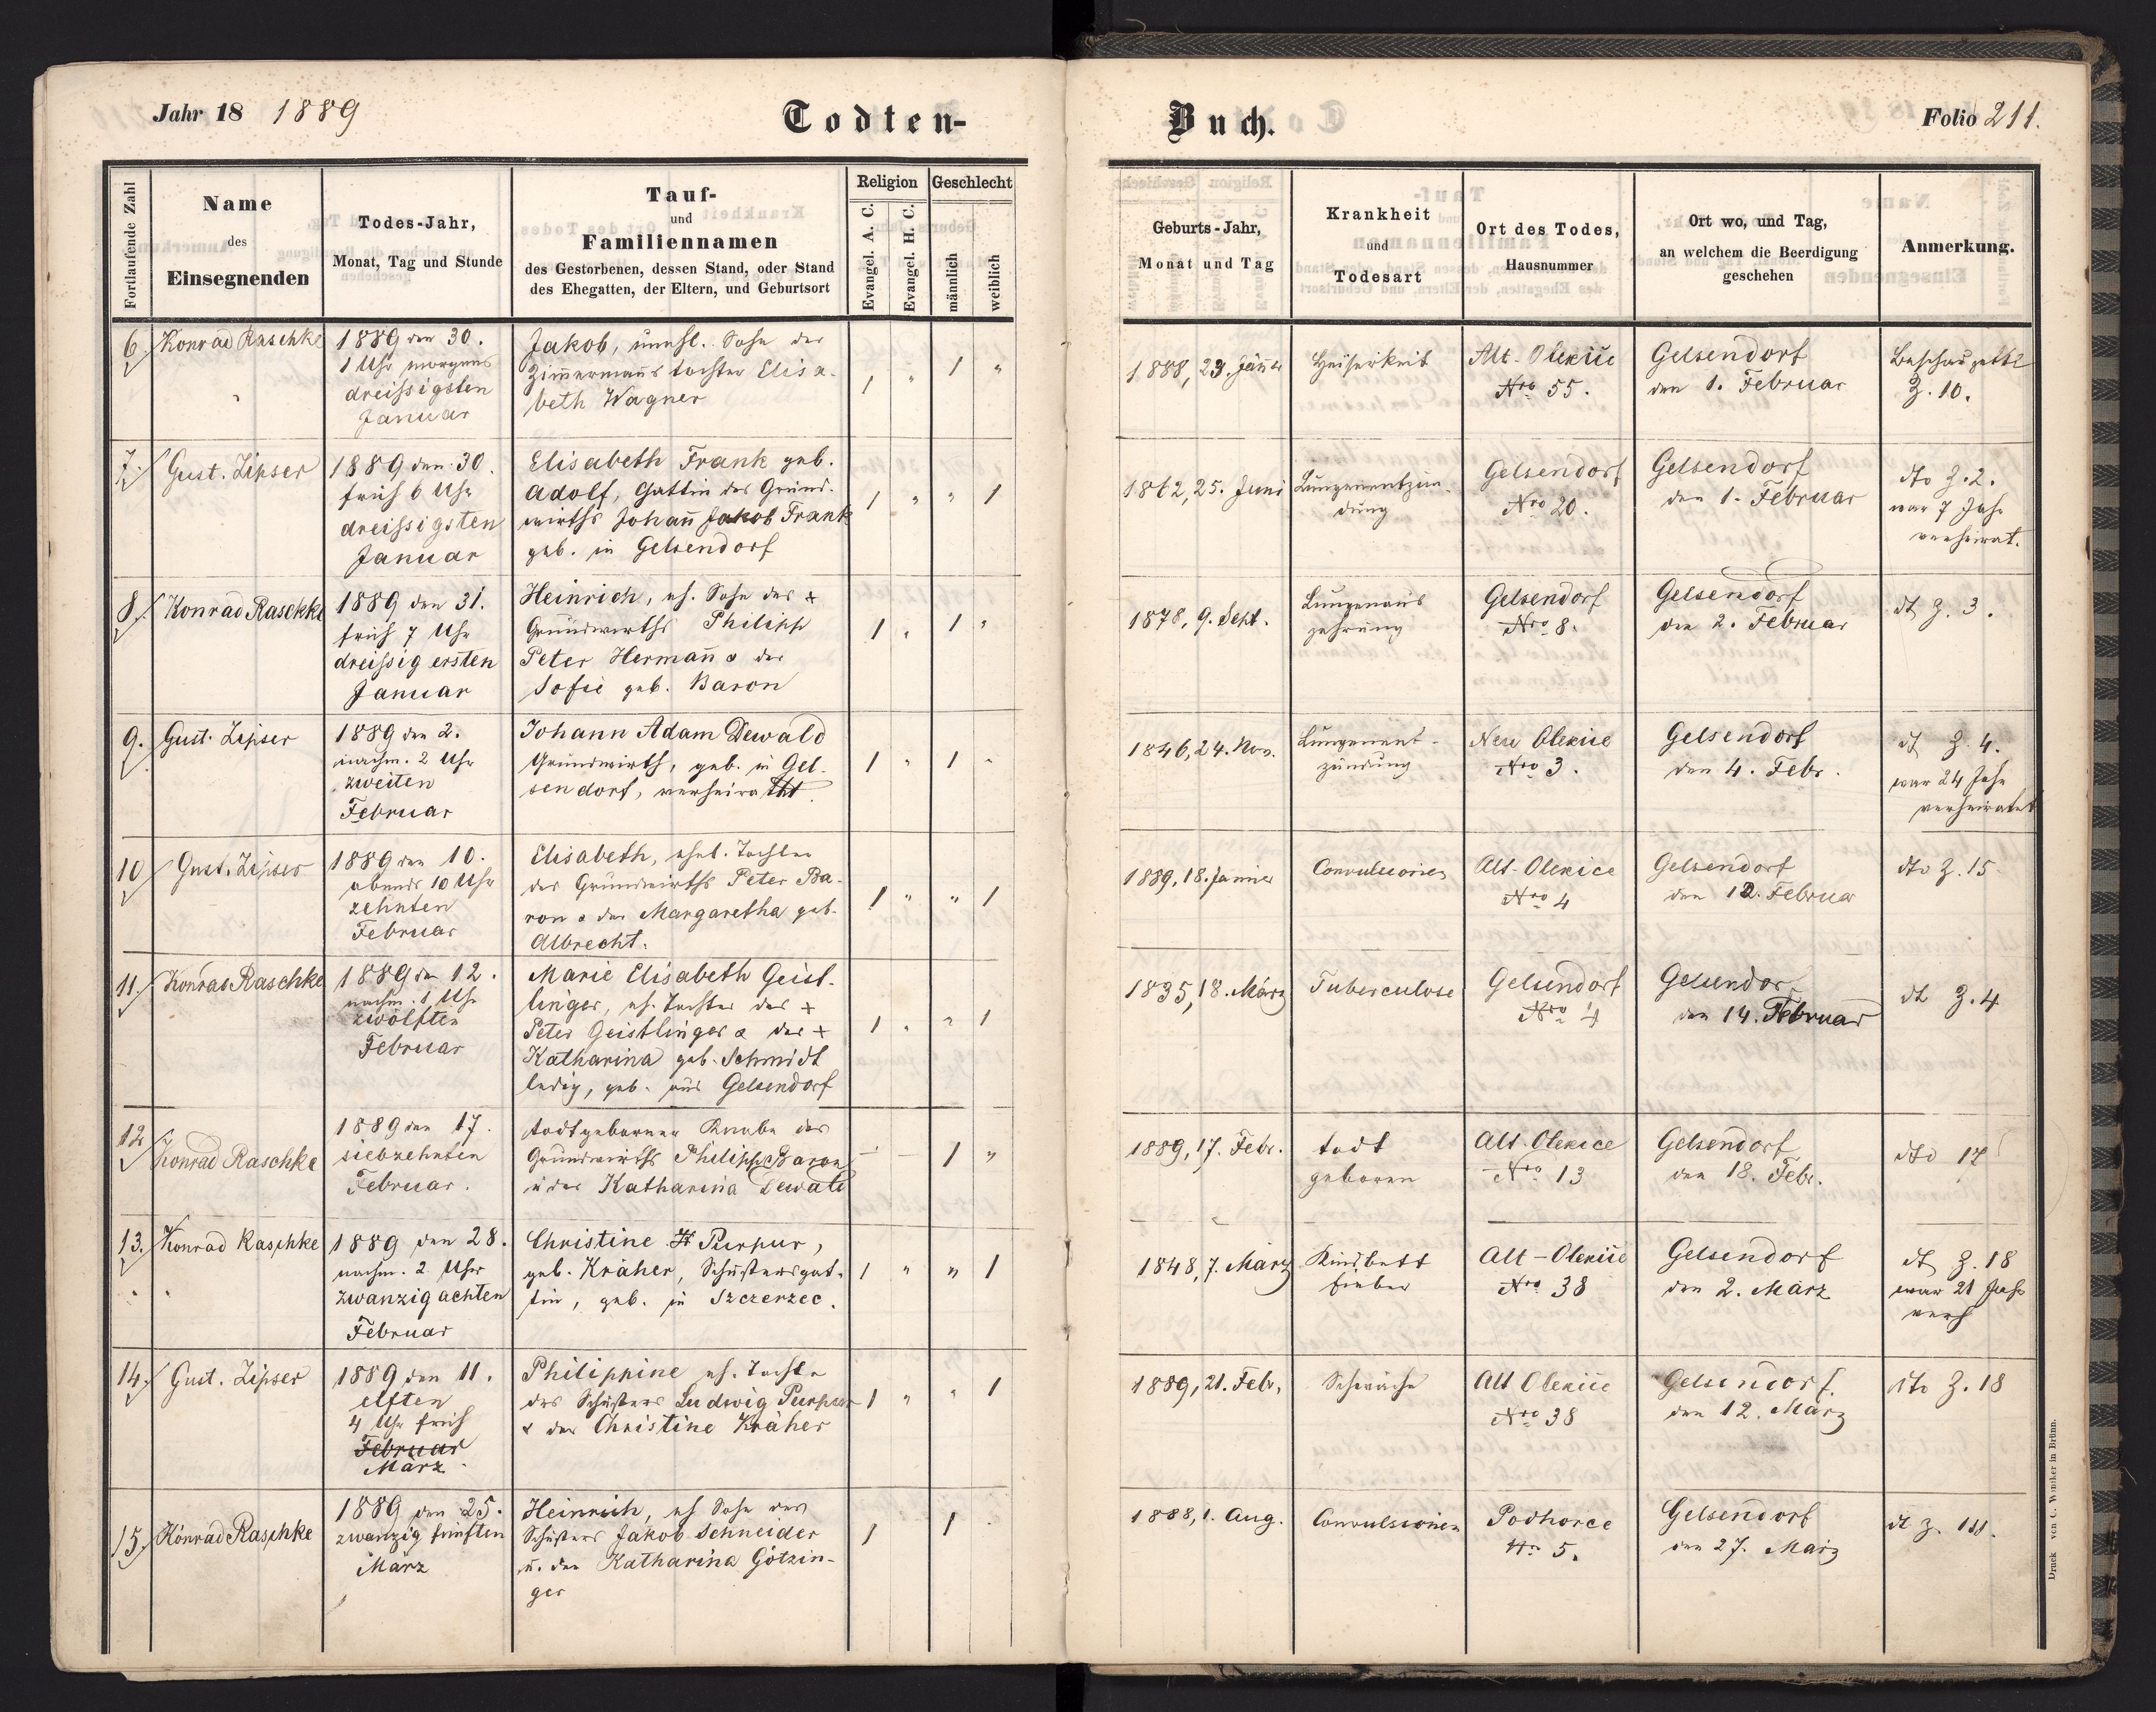 Jahr 18 1889
Todten-
Fortlaufende Zahl
Name
des
Einsegnenden
Todes-Jahr,
Monat, Tag und Stunde
Tauf-
und
Familiennamen
des Gestorbenen, dessen Stand, oder Stand
des Ehegatten, der Eltern, und Geburtsort
Religion
Evangel. A. C.
Evangel. H. C.
Geschlecht
männlich
weiblich
Buch.
Folio 211.
Geburts-Jahr,
Monat und Tag
Krankheit
und
Todesart
Ort des Todes,
Hausnummer
Ort wo, und Tag,
an welchem die Beerdigung
geschehen
Anmerkung.
6
Konrad Raschke
1889 den 30.
1 Uhr morgens
dreissigsten
Januar
Jakob, unehl. Sohn der
Zimmermanns tochter Elisa-
beth Wagner
1 " 1 "
1888, 23. Jänner
Heiserkeit
Alt-Olexice
Nro 55.
Gelsendorf
den 1. Februar
Beschauzettl
Z. 10.
7.
Gust. Zipser
1889 den 30.
früh 6 Uhr
dreissigsten
Januar
Elisabeth Frank geb.
Adolf, Gattin des Grund-
wirths Johann Jakob Frank
geb. in Gelsendorf
1 " " 1
1862, 25. Juni
Lungenentzün-
dung
Gelsendorf
Nro 20.
Gelsendorf
den 1. Februar
dto Z. 2.
war 7 Jahr
verheirat.
8.
Konrad Raschke
1889 den 31.
früh 7 Uhr
dreissig ersten
Januar
Heinrich, eh. Sohn des +
Grundwirths Philipp
Peter Hermann & der
Sofie geb. Baron
1 " 1 "
1878, 9. Sept.
Lungenaus
zehrung
Gelsendorf
Nro 8.
Gelsendorf
den 2. Februar
dt Z. 3.
9.
Gust. Zipser
1889 den 2.
nachm. 2 Uhr
zweiten
Februar
Johann Adam Dewald
Grundwirth, geb. in Gel-
sendorf, verheirathet
1 " 1 "
1846, 24. Nov.
Lungenent-
zündung
Neu Olexice
Nro 3.
Gelsendorf
den 4. Febr.
dt Z. 4.
war 24 Jahr
verheiratet
10
Gust. Zipser
1889 den 10.
abends 10 Uhr
zehnten
Februar
Elisabeth, ehel. Tochter
des Grundwirths Peter Ba-
ron & der Margaretha geb.
Albrecht.
1 " " 1
1889, 18. Jänner
Convulsionen
Alt-Olexice
Nro 4
Gelsendorf
den 12. Februar
dto Z. 15
11.
Konrad Raschke
1889 den 12.
nachm. 1 Uhr
zwölften
Februar
Marie Elisabeth Geist-
linger, eh. Tochter des +
Peter Geistlinger & der +
Katharina geb. Schmidt
ledig, geb. aus Gelsendorf
1 " " 1
1835, 18. März
Tuberculose
Gelsendorf
Nro 4
Gelsendorf
den 14. Februar
dt Z. 4
12
Konrad Raschke
1889 den 17.
siebzehnten
Februar.
todtgeborner Knabe des
Grundwirths Philipp Baron
u der Katharina Dewald
– – 1 "
1889, 17. Febr.
todt
geboren
Alt-Olexice
Nro 13
Gelsendorf
den 18. Febr.
dto 17
13.
Konrad Raschke
1889 den 28.
nachm. 2 Uhr
zwanzig achten
Februar
Christine Purpur,
geb. Kräher, Schustersgat-
tin, geb. in Szczerzec.
1 " " 1
1848, 7. März
Kindbett
fieber
Alt-Olexice
Nro 38
Gelsendorf
den 2. März
dt Z. 18
war 21 Jahr
verh
14.
Gust. Zipser
1889 den 11.
elften
4 Uhr früh
Februar
März
Philippine eh. Tochter
des Schusters Ludwig Purpur
& der Christine Kräher
1 " " 1
1889, 21. Febr.
Schwäche
Alt Olexice
Nro 38
Gelsendorf.
den 12. März
dto Z. 18
15.
Konrad Raschke
1889 den 25.
zwanzig fünften
März
Heinrich, eh Sohn des
Schusters Jakob Schneider
u. der Katharina Götzin-
ger
1 1
1888, 1. Aug.
Convulsionen
Podhorce
Nr 5.
Gelsendorf
den 27. März
dt Z.
Druck von C. Winiker in Brünn.